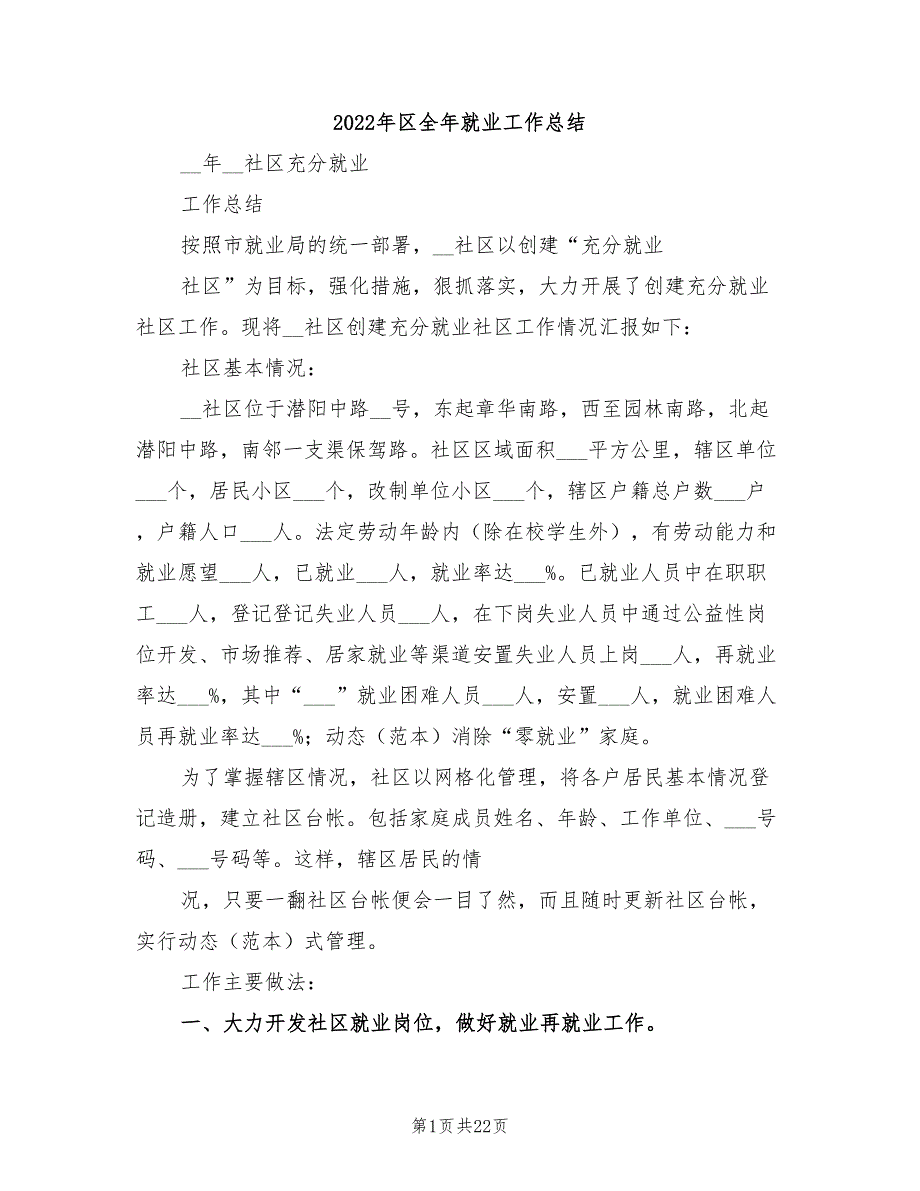 2022年区全年就业工作总结
__年__社区充分就业
工作总结
按照市就业局的统一部署，__社区以创建“充分就业
社区”为目标，强化措施，狠抓落实，大力开展了创建充分就业
社区工作。现将__社区创建充分就业社区工作情况汇报如下：
社区基本情况：
__社区位于潜阳中路__号，东起章华南路，西至园林南路，北起
潜阳中路，南邻一支渠保驾路。社区区域面积___平方公里，辖区单位
___个，居民小区___个，改制单位小区___个，辖区户籍总户数___户
，户籍人口___人。法定劳动年龄内（除在校学生外），有劳动能力和
就业愿望___人，已就业___人，就业率达___%。已就业人员中在职职
工___人，登记登记失业人员___人，在下岗失业人员中通过公益性岗
位开发、市场推荐、居家就业等渠道安置失业人员上岗___人，再就业
率达___%，其中“___”就业困难人员___人，安置___人，就业困难人
员再就业率达___%；动态（范本）消除“零就业”家庭。
为了掌握辖区情况，社区以网格化管理，将各户居民基本情况登
记造册，建立社区台帐。包括家庭成员姓名、年龄、工作单位、___号
码、___号码等。这样，辖区居民的情
况，只要一翻社区台帐便会一目了然，而且随时更新社区台帐，
实行动态（范本）式管理。
工作主要做法：
一、大力开发社区就业岗位，做好就业再就业工作。
第1页共22页